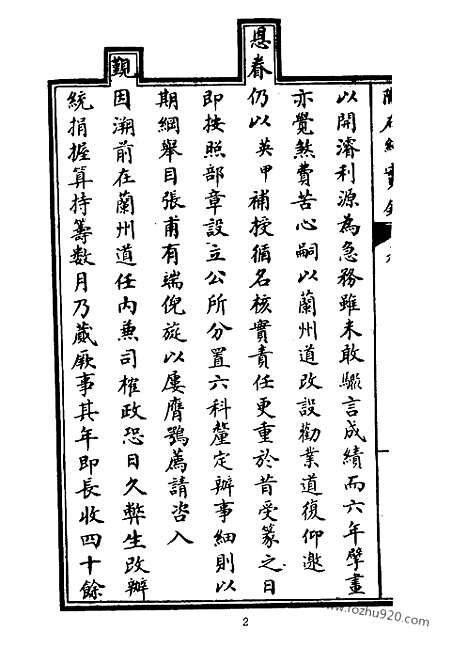 隴右紀實錄
以開濬利源為急務雖未敢驟言成績而六年擘畫
亦覺煞費苦心嗣以蘭州道改設勸業道復仰邀
恩眷
仍以英甲補授循名核實責任更重於昔受篆之日
即按照部章設立公所分置六科釐定辦事細則以
期綱舉目張甫有端倪旋以屢膺鶚薦請咨入
覲
因溯前在蘭州道任內兼司榷政恐日久弊生改辦
統捐握算持籌數月乃蕆厥事其年即長收四十餘
2
www.fozhu920.com